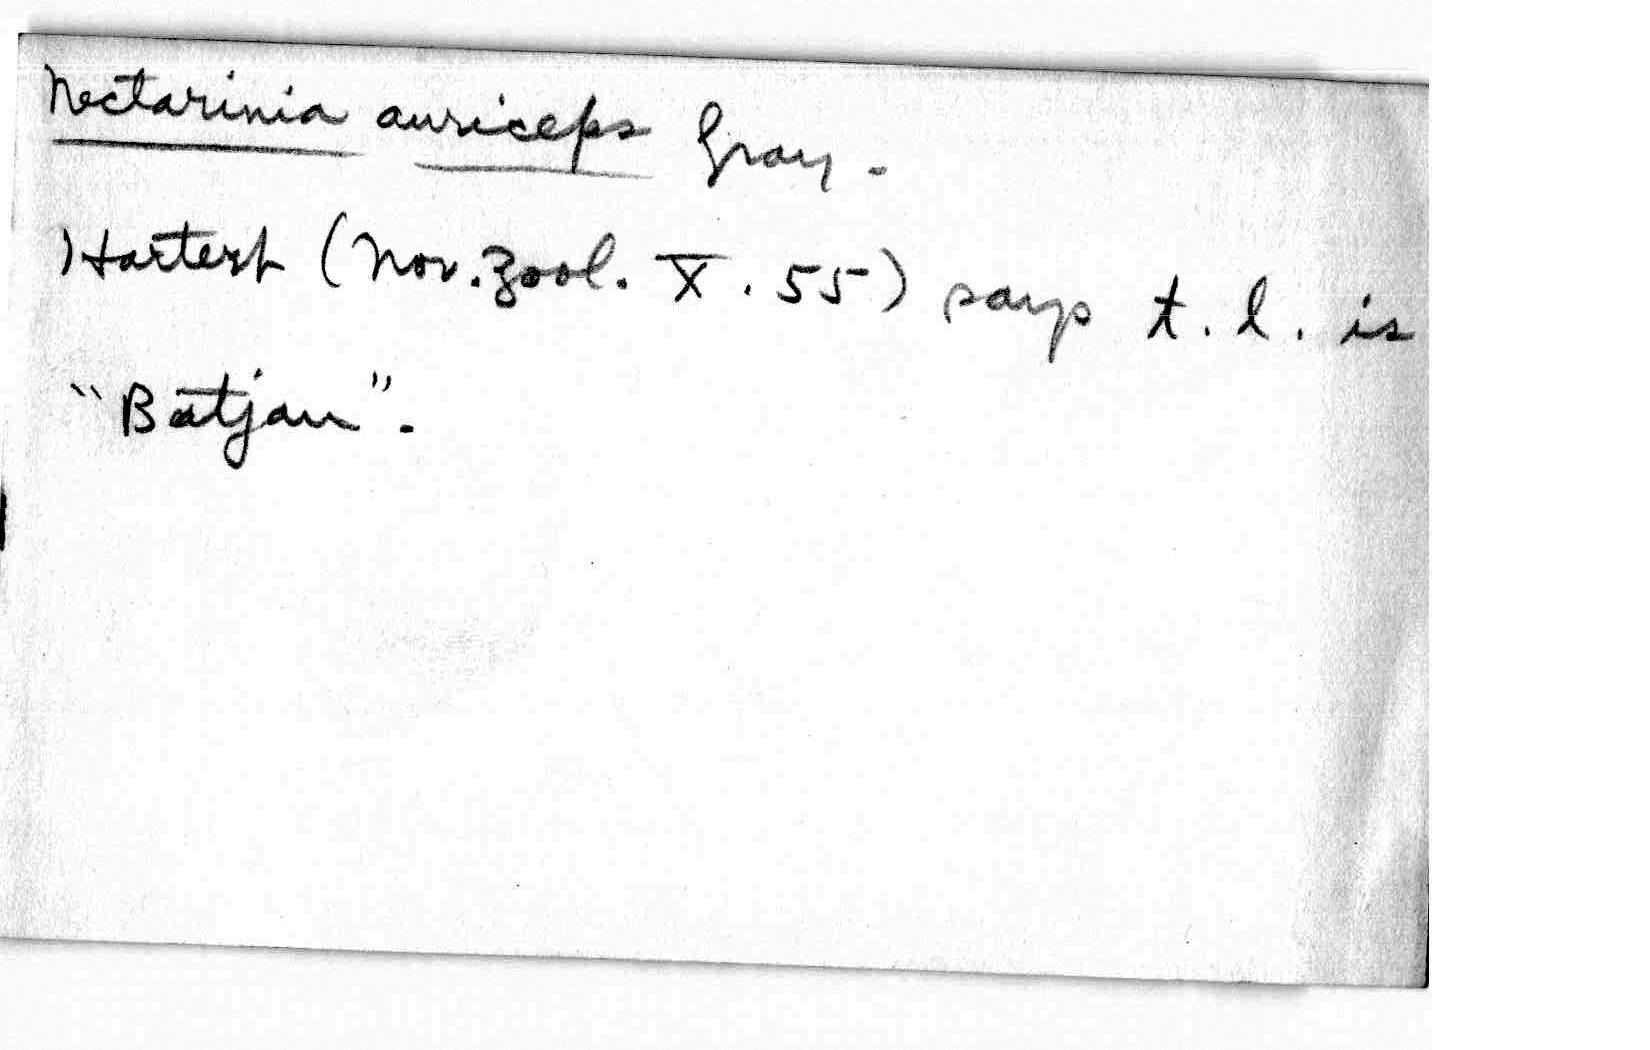 Nectarinia auriceps Gray.
Hartert (Nov. Zool. X. 55) says t. l. is
"Batjan".